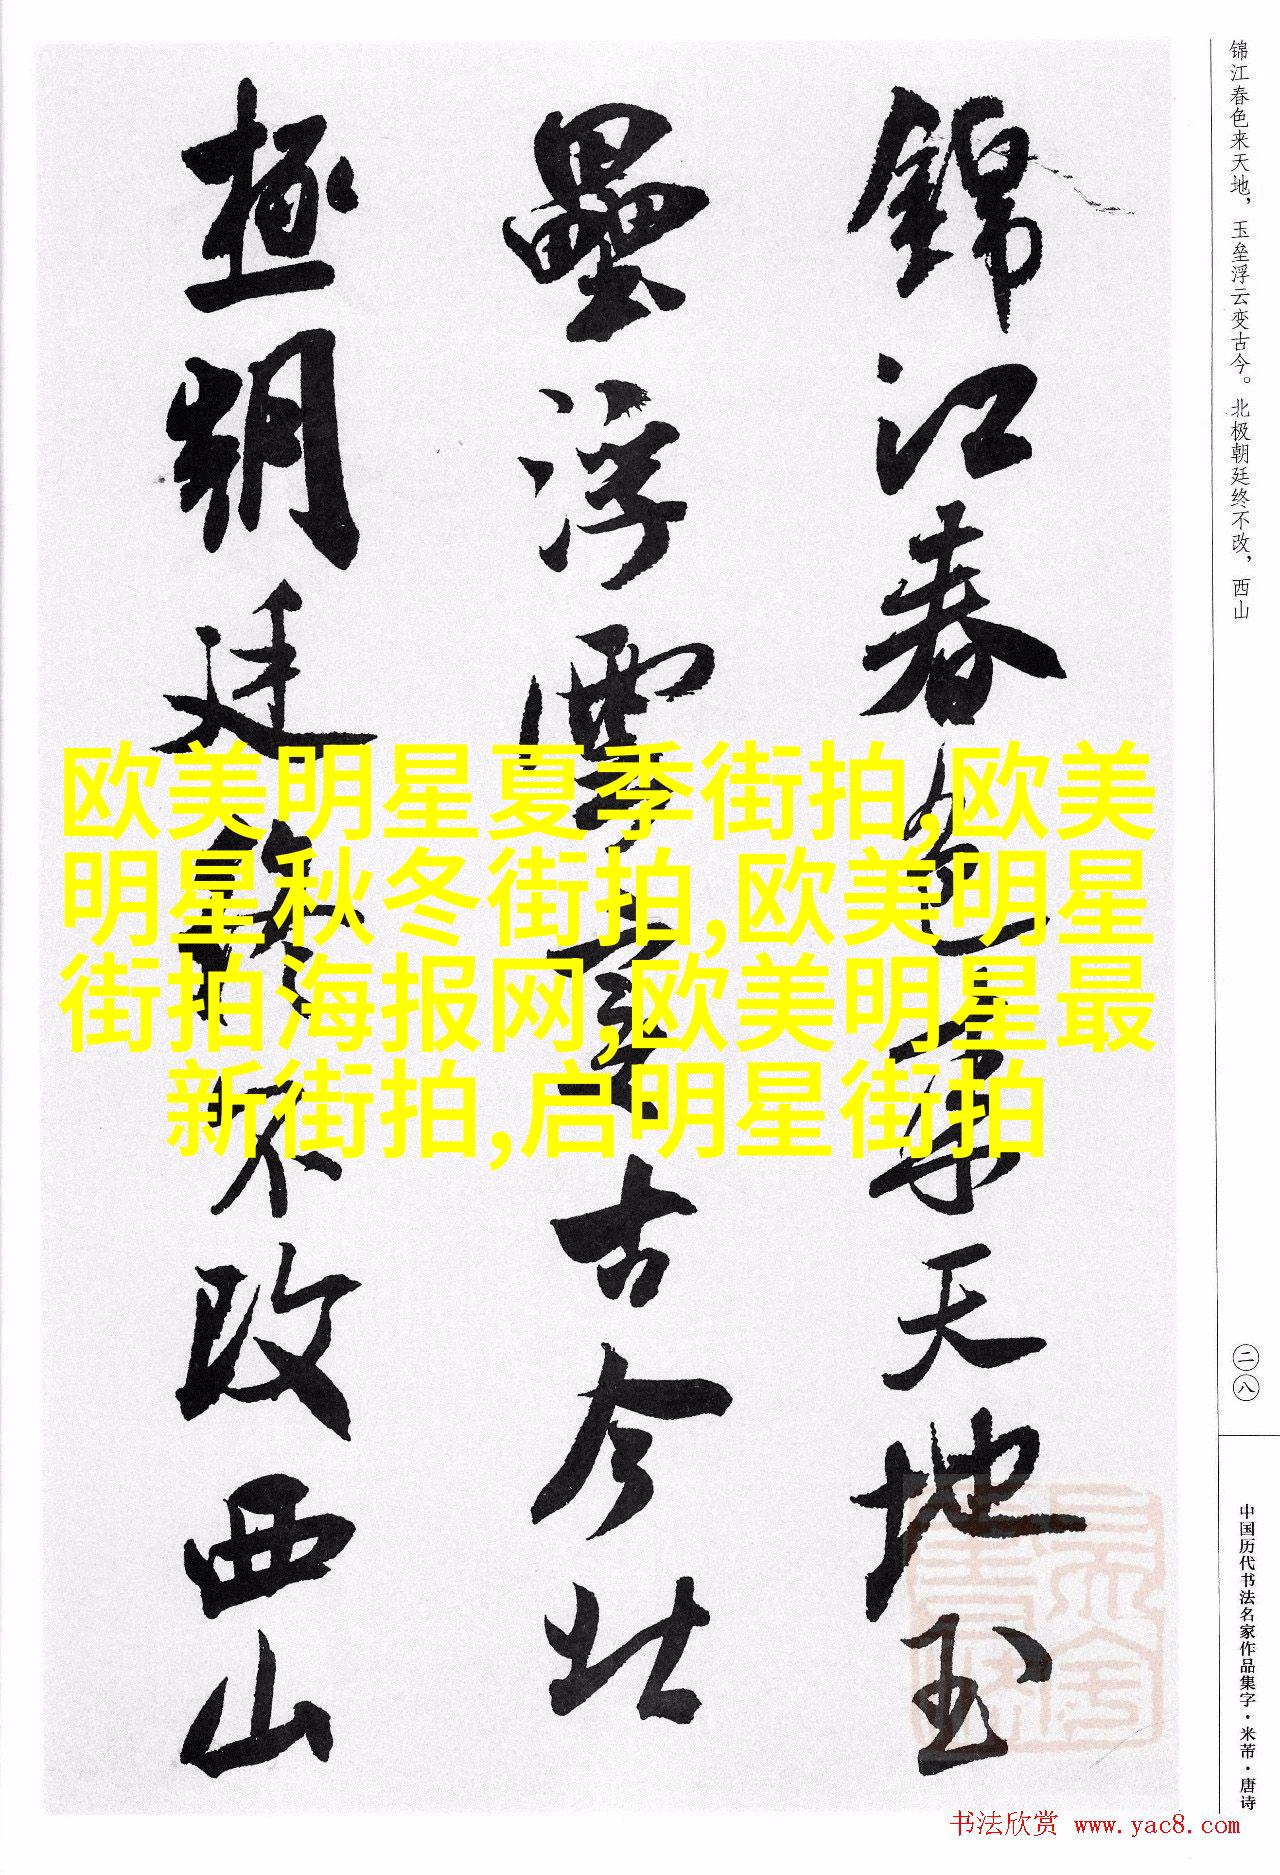 锦江春色来天地，玉垒浮云变古今。北极朝廷终不改，西山
錦江春色来天地玉
壘浮雲变古今北
極朝廷終不改西山
欧美明星夏季街拍,欧美
明星秋冬街拍,欧美明星
街拍海报网,欧美明星最
新街拍,启明星街拍
二八
中国历代书法名家作品集字·米芾·唐诗
书法欣赏 www.yac8.com